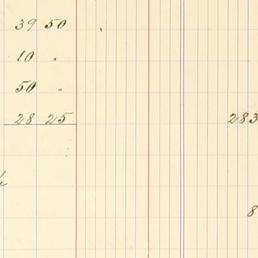 39 50
10 "
50 "
28 25 283
8